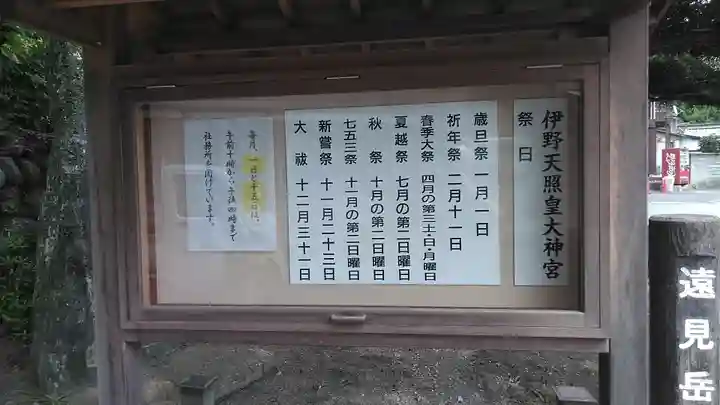 伊野天照皇大神宮
祭日
歳旦祭 一月一日
祈年祭 二月十一日
春季大祭 四月の第三土・日・月曜日
夏越祭 七月の第二日曜日
秋祭 十月の第二日曜日
七五三祭 十一月の第二日曜日
新嘗祭 十一月二十三日
大祓 十二月三十一日
毎月、一日と十五日は、
午前十時から午後四時まで
社務所を開けています。
遠見岳